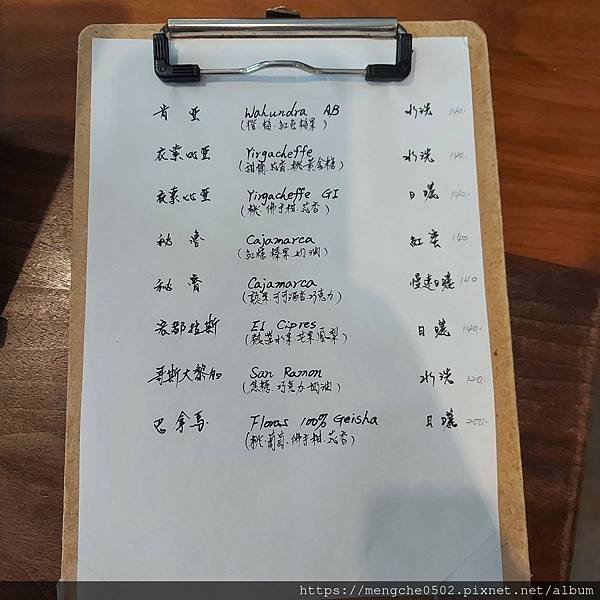 肯亞 Wahundra AB 水洗 140.
(橙.梅.紅色糖果)
衣索比亞 Yirgacheffe 水洗 140.
(甜橘.花香.桃.黃金糖)
衣索比亞 Yirgacheffe G1 日曬 140.
(桃.佛手柑.花香)
秘魯 Cajamarca 紅蜜 140
(紅糖.榛果.奶油)
秘魯 Cajamarca 慢速日曬 140
(可可.酒香.巧克力)
瓜都拉斯 El Cipres 日曬 140.
(鳳梨)
哥斯大黎加 San Ramon 水洗 120.
(焦糖.巧克力.奶油)
巴拿馬 Floras 100% Geisha 日曬 200.
(桃.葡萄.佛手柑.花香)
https://mengche0502.pixnet.net/album